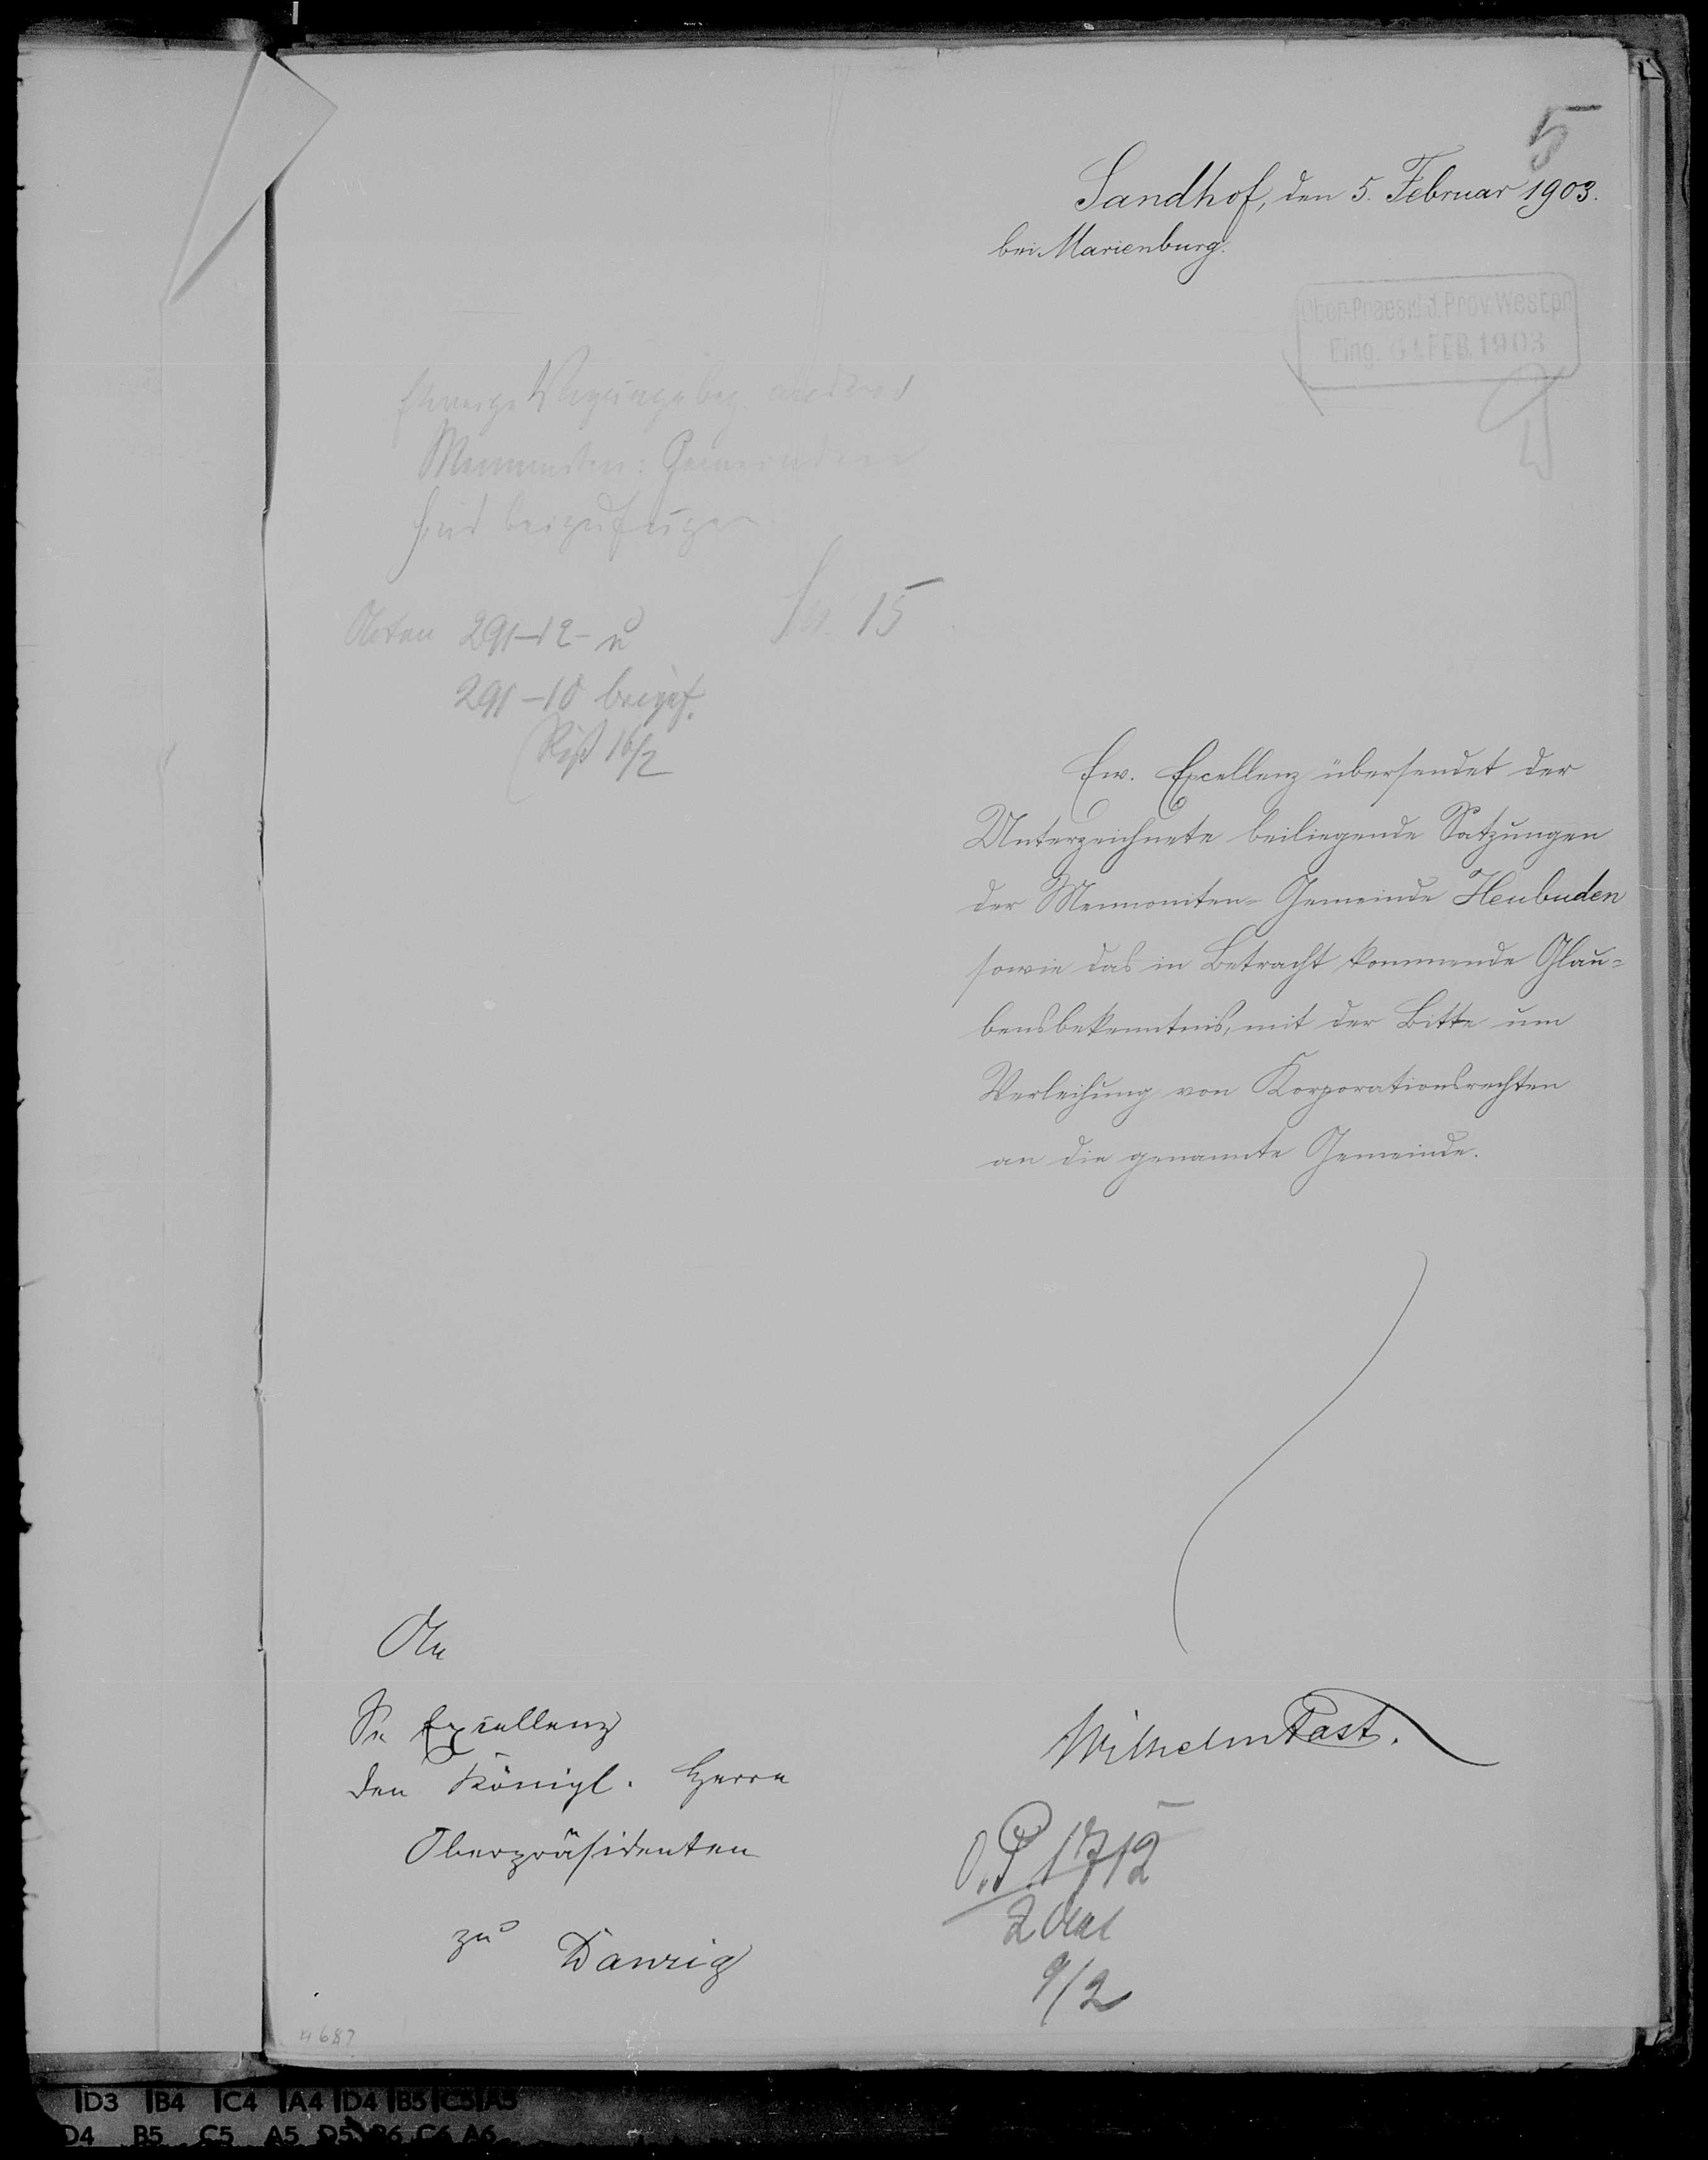 5
Sandhof, den 5. Februar 1903.
bei Marienburg.
Ober-Praesid. d. Prov. Westpr.
Eing. 6. FEB. 1903
Mennoniten: Gemeinden
sind beizufügen
15
Akten 291-12- u
291-10 beigef.
16/2
Ew. Excellenz übersendet der
Unterzeichnete beiliegende Satzungen
der Mennoniten-Gemeinde Heubuden
sowie das in Betracht kommende Glau-
bensbekenntnis, mit der Bitte um
Verleihung von Korporationsrechten
an die genannte Gemeinde.
An
Se Excellenz
den Königl. Herrn
Oberpräsidenten
zu Danzig
Wilhelm Fast.
O.P. 1712
9/2
4687
D3 B4 C4 A4 D4 B5 C5 A5
D4 B5 C5 A5 D5 B6 C6 A6